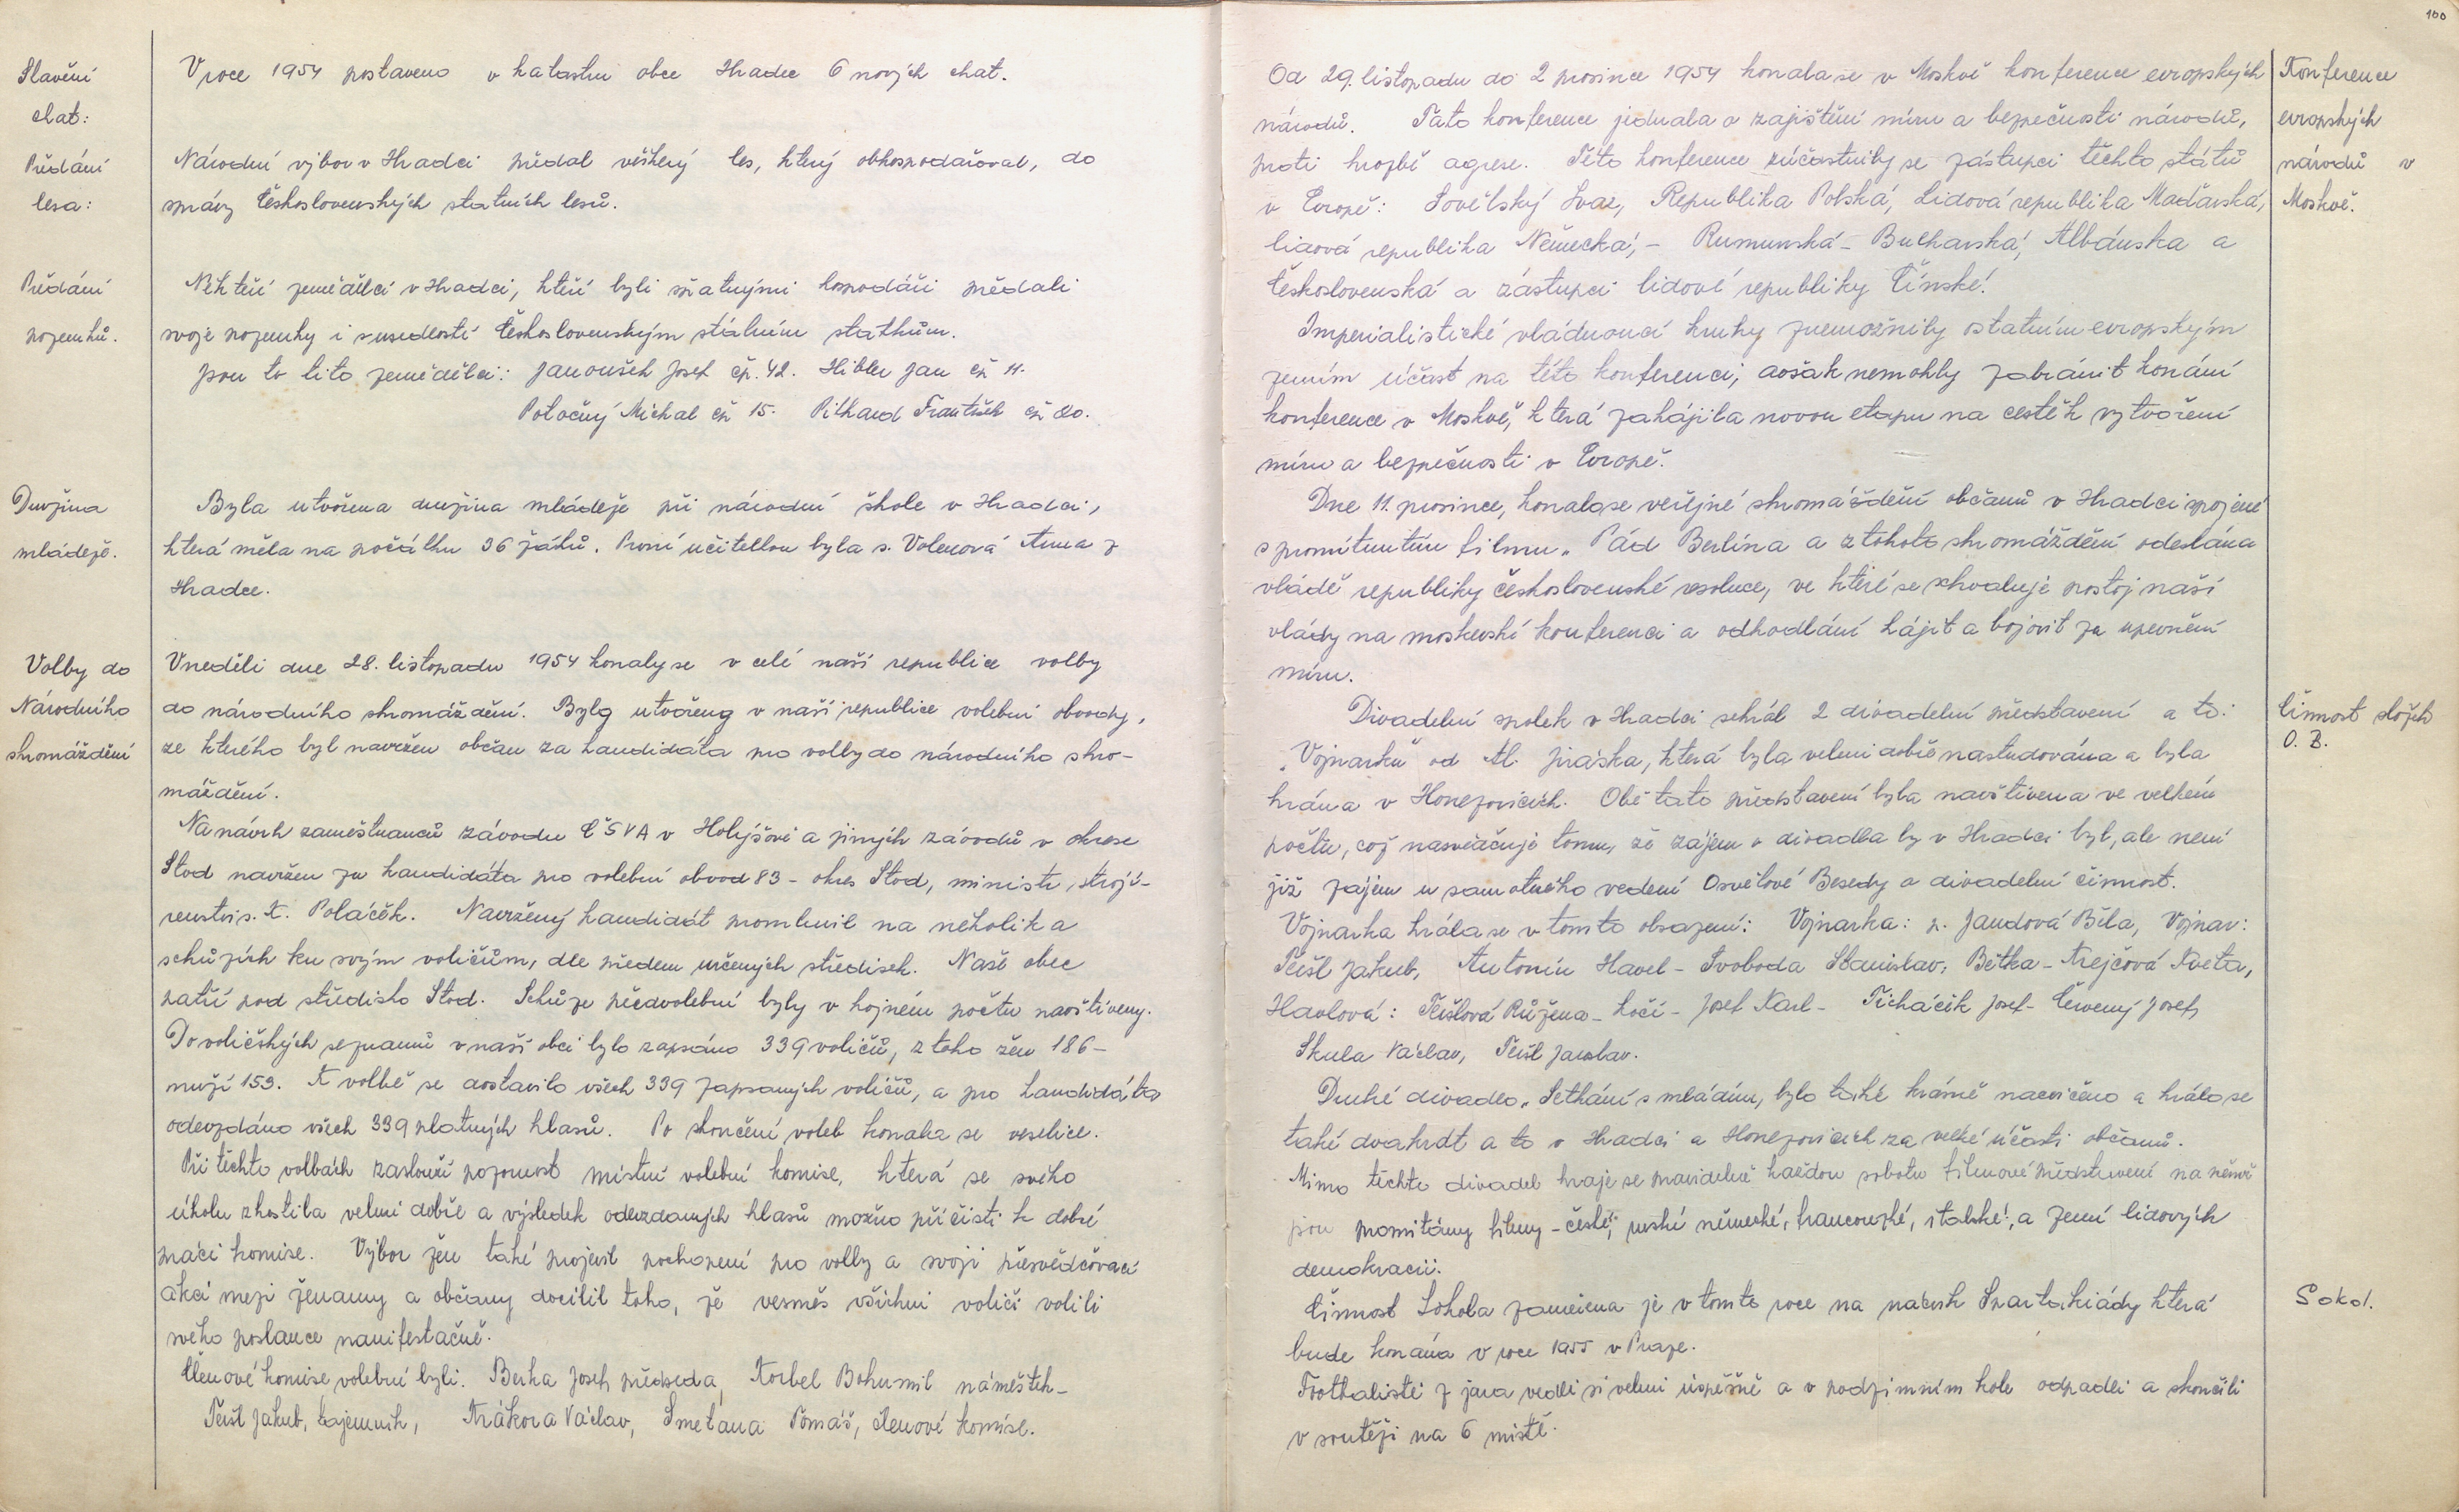 Stavění
chat:
V roce 1954 postaveno v katastru obce Hradec 6 nových chat.
Předání
lesa:
Národní výbor v Hradci předal veškerý les, který obhospodařoval, do
správy Československých státních lesů.
Předání
pozemků.
Někteří zemědělci v Hradci, kteří byli špatnými hospodáři předali
svoje pozemky i s usedlostí Československým státním statkům.
Jsou to tito zemědělci: Janoušek Josef čp. 42. Hibler Jan čp 11.
Potočný Michal čp 15. Pikhard František čp 20.
Družina
mládeže.
Byla utvořena družina mládeže při národní škole v Hradci,
která měla na počátku 36 žáků. První učitelkou byla s. Volenová Anna z
Hradce.
Volby do
Národního
shromáždění
V neděli dne 28. listopadu 1954 konaly se v celé naší republice volby
do národního shromáždění. Byly utvořeny v naší republice volební obvody,
ze kterého byl navržen občan za kandidáta pro volby do národního shro-
máždění.
Na návrh zaměstnanců závodu ČSVA v Holýšově a jiných závodů v okrese
Stod navržen za kandidáta pro volební obvod 83 - okres Stod, ministr strojí-
renství s. K. Poláček. Navržený kandidát promluvil na několika
schůzích ku svým voličům, dle předem určených středisek. Naše obec
patří pod středisko Stod. Schůze předvolební byly v hojném počtu navštíveny.
Do voličských seznamů v naší obci bylo zapsáno 339 voličů, z toho žen 186 -
mužů 153. K volbě se dostavilo všech 339 zapsaných voličů, a pro kandidáta
odevzdáno všech 339 platných hlasů. Po skončení voleb konala se veselice.
Při těchto volbách zaslouží pozornost místní volební komise, která se svého
úkolu zhostila velmi dobře a výsledek odevzdaných hlasů možno přičísti k dobré
práci komise. Výbor žen také projevil pochopení pro volby a svojí přesvědčovací
akcí mezi ženamy a občany docílil toho, že vesměs všichni voliči volili
svého poslance manifestačně.
Členové komise volební byli. Berka Josef, předseda, Korbel Bohumil náměstek -
Teišl Jakub, tajemník, Krákora Václav, Smetana Tomáš, členové komise.
100
Konference
evropských
národů v
Moskvě.
Od 29. listopadu do 2 prosince 1954 konala se v Moskvě konference evropských
národů. Tato konference jednala o zajištění míru a bezpečnosti národů,
proti hrozbě agrese. Této konference zúčastnily se zástupci těchto států
v Evropě: Sovětský Svaz, Republika Polská, Lidová republika Maďarská,
lidová republika Německá, - Rumunská - Bulharská, Albánska a
Československá a zástupci lidové republiky Čínské.
Imperialistické vládnoucí kruhy znemožnily ostatním evropským
zemím účast na této konferenci, avšak nemohly zabránit konání
konference v Moskvě, která zahájila novou etapu na cestě k vytvoření
míru a bezpečnosti v Evropě.
Dne 11. prosince, konalo se veřejné shromáždění občanů v Hradci spojené
s promítnutím filmu „Pád Berlína a z tohoto shromáždění odeslána
vládě republiky československé resoluce, ve které se schvaluje postoj naší
vlády na moskevské konferenci a odhodlání hájit a bojovit za upevnění
míru.
Činnost složek
O. B.
Divadelní spolek v Hradci sehrál 2 divadelní představení a to:
„Vojnarku" od Al. Jiráska, která byla velmi dobře nastudována a byla
hrána v Honezovicích. Obě tato představení byla navštívena ve velkém
počtu, což nasvědčuje tomu, že zájem o divadla by v Hradci byl, ale není
již zájem u samotného vedení Osvětové Besedy o divadelní činnost.
Vojnarka hrála se v tomto obsazení: Vojnarka: p. Jandová Běla, Vojnar:
Teišl Jakub, Antonín Havel - Svoboda Stanislav, Bětka - Krejčová Květa,
Havlová: Teišlová Růžena - kočí - Josef Karl - Ticháček Josef - Červený Josef,
Skala Václav, Teišl Jaroslav.
Druhé divadlo „Setkání s mládím, bylo také krásně nacvičeno a hrálo se
také dvakrát a to v Hradci a Honezovicích za velké účasti občanů.
Mimo těchto divadel hraje se pravidelně každou sobotu filmové představení na němž
jsou promítány filmy - české, ruské německé, francouzské, italské, a zemí lidových
demokracií.
Sokol.
Činnost Sokola zaměřena je v tomto roce na nácvik Spartakiády která
bude konána v roce 1955 v Praze.
Footbalisté z jara vedli si velmi úspěšně a v podzimním kole odpadli a skončili
v soutěži na 6 místě.